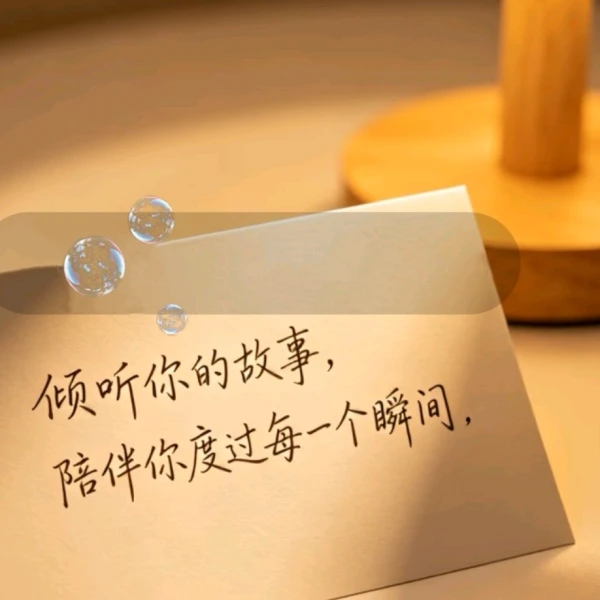 倾听你的故事，
陪伴你度过每一个瞬间，